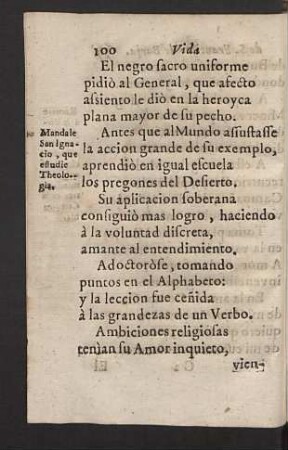 100 Vida
El negro sacro uniforme
pidiò al General, que afecto
assiento le diò en la heroyca
plana mayor de su pecho.
Mandale
San Igna-
cio, que
estudie
Theolo-
gia.
Antes que al Mundo assustasse
la accion grande de su exemplo,
aprendiò en igual escuela
los pregones del Desierto.
Su aplicacion soberana
consiguiò mas logro, haciendo
à la voluntad discreta,
amante al entendimiento.
Adoctoròse, tomando
puntos en el Alphabeto:
y la leccion fue ceñida
à las grandezas de un Verbo.
Ambiciones religiosas
tenian su Amor inquieto,
vien-